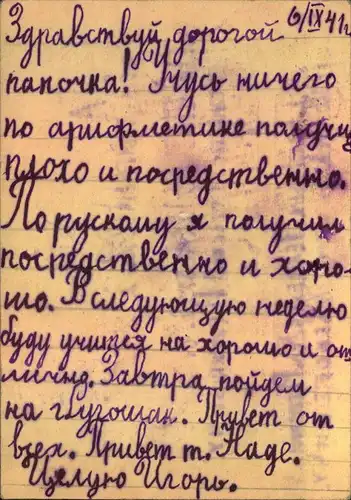 6/IX 41г
Здравствуй дорогой
папочка! Учусь ничего
по арифметике получил
плохо и посредственно.
По рускому я получил
посредственно и хоро-
шо. В следующую неделю
буду учится на хорошо и от
лично. Завтра пойдем
на
Привет от
всех. Привет т. Наде.
Целую Игорь.